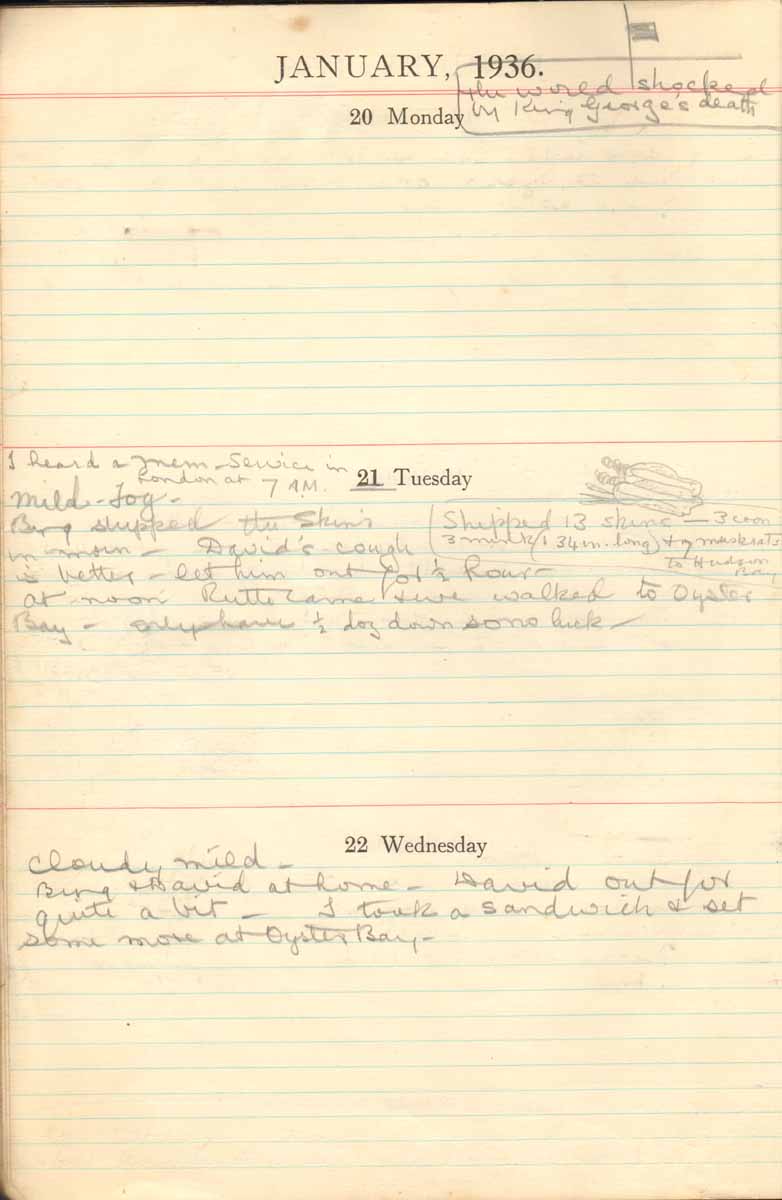 JANUARY, 1936.
the world shocked
by King George's death
20 Monday
I heard a mem-Service in
London at 7 AM.
21 Tuesday
mild - fog -
Bing shipped the Skins
in morn - David's cough
(Shipped 13 skins - 3 coon
3 mink (1 34 in. long) & 7 muskrats
to Hudson
Bay
is better - let him out for ½ Hour -
at noon came & we walked to Oyster
Bay - only have ½ doz down so no luck -
22 Wednesday
Cloudy mild -
Bing & David at home - David out for
quite a bit - I took a sandwich & set
some more at Oyster Bay -